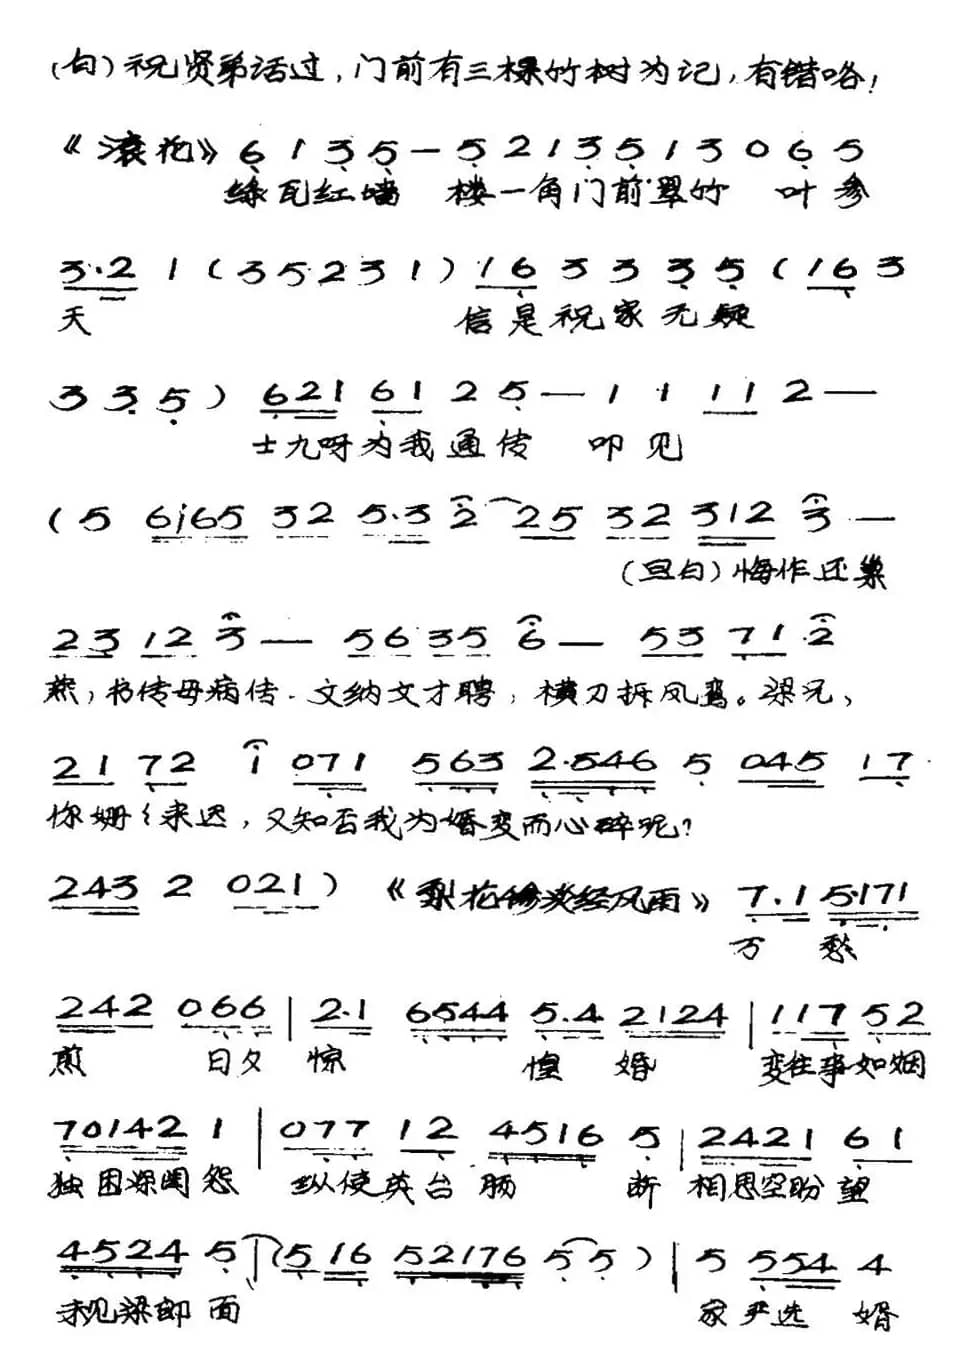 (白)祝贤弟话过，门前有三棵竹树为记，有错咯！
《滚花》6 1 3 5 — 5 2 1 3 5 1 3 0 6 5
绿瓦红墙 楼一角门前翠竹 叶参
3·2 1 (3 5 2 3 1) 1 6 3 3 3 5 (1 6 3
天 信是祝家无疑
3 3 5) 6 2 1 6 1 2 5 — 1 1 1 1 2 —
士九呀为我通传 叩见
(5 6 i 6 5 3 2 5·3 2 2 5 3 2 3 1 2 3 —
(旦白)悔作还巢
2 3 1 2 3 — 5 6 3 5 6 — 5 3 7 1·2
燕，书传母病传·文纳文才聘，横刀拆凤鸾。梁兄，
2 1 7 2 i 0 7 1 5 6 3 2·5 4 6 5 0 4 5 1 7
你姗〻来迟，又知否我为婚变而心碎呢？
2 4 3 2 0 2 1) 《梨花惨淡经风雨》 7·1 5·1 7 1
万 愁
2 4 2 0 6 6 | 2·1 6 5 4 4 5·4 2 1 2 4 | 1 1 7 5 2
煎 日夕 惊 惶 婚 变往事如烟
7 0 1 4 2 1 | 0 7 7 1 2 4 5 1 6 5 | 2 4 2 1 6 1
独困深闺怨 纵使英台肠 断 相思空盼望
4 5 2 4 5 | (5 1 6 5 2 1 7 6 5 5) | 5 5 5 4 4
未见梁郎 面 家严选 婚